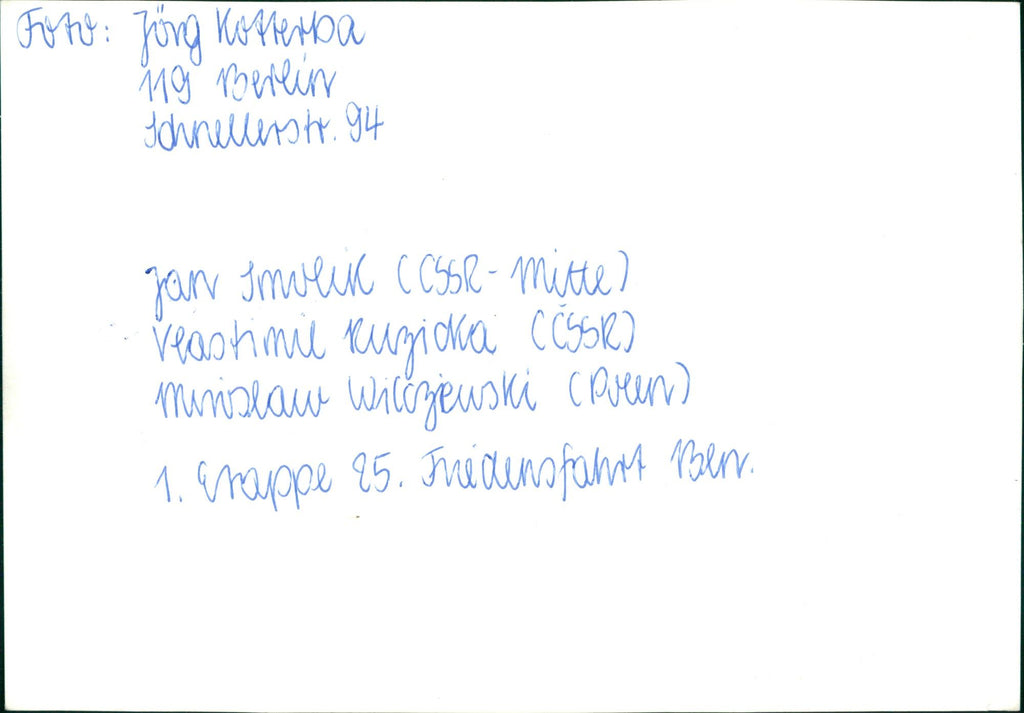 Foto: Jörg Kotterba
119 Berlin
Schnellerstr. 94
Jan Smolik (ČSSR - Mitte)
Vlastimil Ruzicka (ČSSR)
Miroslaw Wilczjewski (Polen)
1. Etappe 25. Friedensfahrt Berl.